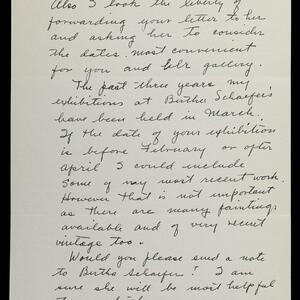 Also I took the liberty of
forwarding your letter to her
and asking her to consider
the dates most convenient
for you and her gallery.
The past three years my
exhibitions at Bertha Schaefer's
have been held in March.
If the date of your exhibition
is before February or after
April I could include
some of my most recent work.
However that is not important
as there are many paintings
available and of very recent
vintage too.
Would you please send a note
to Bertha Schaefer? I am
sure she will be most helpful